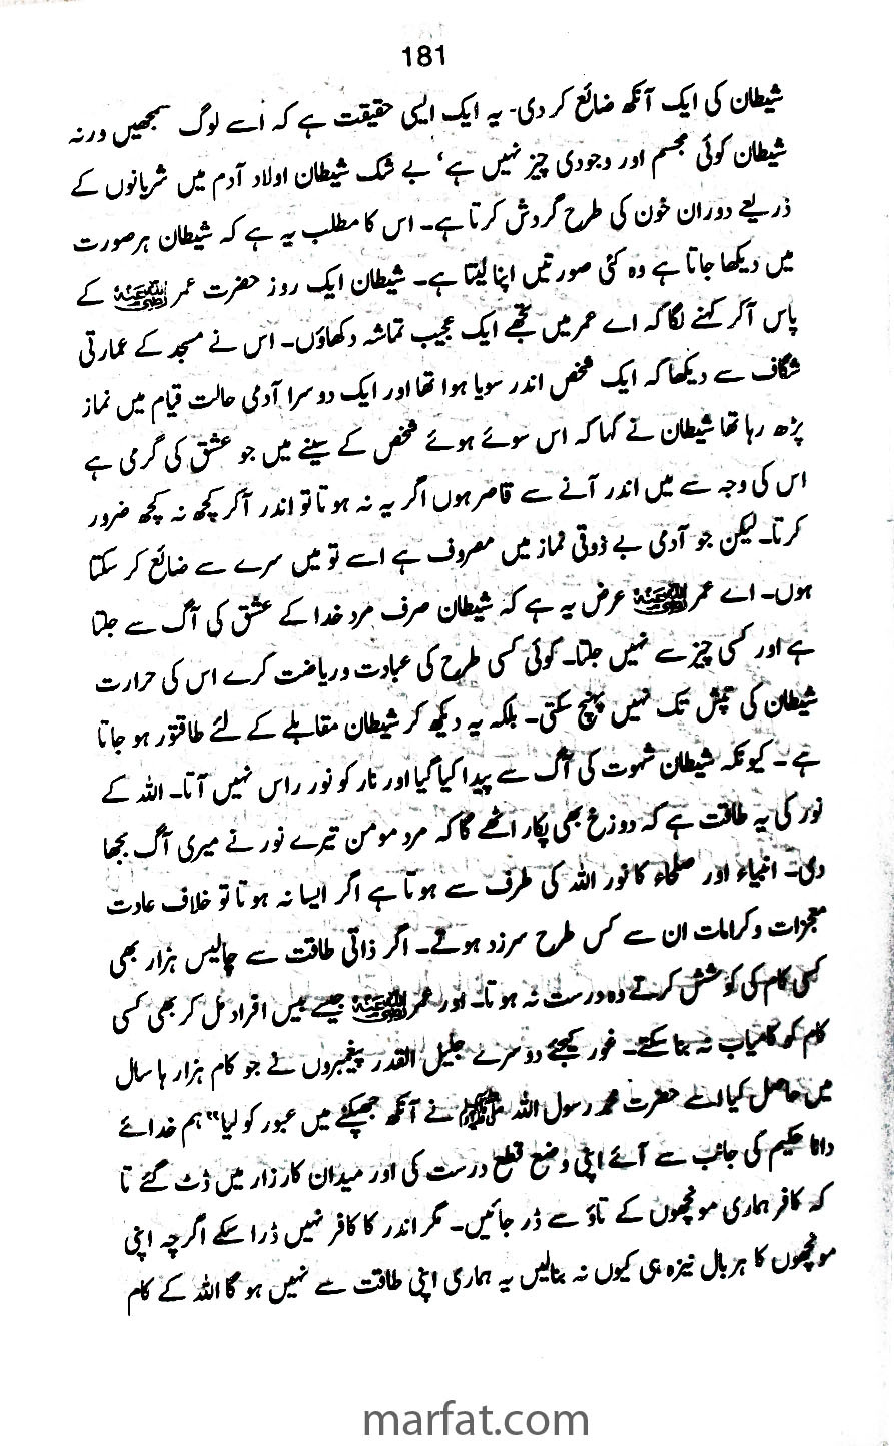 181
شیطان کی ایک آنکھ ضائع کر دی۔ یہ ایک ایسی حقیقت ہے کہ اسے لوگ سمجھیں ورنہ
شیطان کوئی مجسم اور وجودی چیز نہیں ہے‘ بے شک شیطان اولاد آدم میں شریانوں کے
ذریعے دوران خون کی طرح گردش کرتا ہے۔ اس کا مطلب یہ ہے کہ شیطان ہر صورت
میں دیکھا جاتا ہے وہ کئی صورتیں اپنا لیتا ہے۔ شیطان ایک روز حضرت عمر رضی اللہ عنہ کے
پاس آکر کہنے لگا کہ اے عمر میں تجھے ایک عجیب تماشہ دکھاؤں۔ اس نے مسجد کے عمارتی
شگاف سے دیکھا کہ ایک شخص اندر سویا ہوا تھا اور ایک دوسرا آدمی حالت قیام میں نماز
پڑھ رہا تھا شیطان نے کہا کہ اس سوئے ہوئے شخص کے سینے میں جو عشق کی گرمی ہے
اس کی وجہ سے میں اندر آنے سے قاصر ہوں اگر یہ نہ ہوتا تو اندر آکر کچھ نہ کچھ ضرور
کرتا۔ لیکن جو آدمی بے ذوقی نماز میں مصروف ہے اسے تو میں سرے سے ضائع کر سکتا
ہوں۔ اے عمر رضی اللہ عنہ عرض یہ ہے کہ شیطان صرف مرد خدا کے عشق کی آگ سے جلتا
ہے اور کسی چیز سے نہیں جلتا۔ کوئی کسی طرح کی عبادت و ریاضت کرے اس کی حرارت
شیطان کی تپش تک نہیں پہنچ سکتی۔ بلکہ یہ دیکھ کر شیطان مقابلے کے لئے طاقتور ہو جاتا
ہے۔ کیونکہ شیطان شہوت کی آگ سے پیدا کیا گیا اور نار کو نور راس نہیں آتا۔ اللہ کے
نور کی یہ طاقت ہے کہ دوزخ بھی پکار اٹھے گا کہ مرد مومن تیرے نور نے میری آگ بجھا
دی۔ انبیاء اور صلحاء کا نور اللہ کی طرف سے ہوتا ہے اگر ایسا نہ ہوتا تو خلاف عادت
معجزات و کرامات ان سے کس طرح سرزد ہوتے۔ اگر ذاتی طاقت سے چالیس ہزار بھی
کسی کام کی کوشش کرتے وہ درست نہ ہوتا۔ اور عمر رضی اللہ عنہ جیسے بیس افراد مل کر بھی کسی
کام کو کامیاب نہ بنا سکتے۔ غور کیجئے دوسرے جلیل القدر پیغمبروں نے جو کام ہزار ہا سال
میں حاصل کیا اسے حضرت محمد رسول اللہ ﷺ نے آنکھ جھپکنے میں عبور کو لیا ”ہم خدائے
دانا حکیم کی جانب سے آئے اپنی وضع قطع درست کی اور میدان کارزار میں ڈٹ گئے تا
کہ کافر ہماری مونچھوں کے تاؤ سے ڈر جائیں۔ مگر اندر کا کافر نہیں ڈرا سکے اگرچہ اپنی
مونچھوں کا ہر بال نیزہ ہی کیوں نہ بنالیں یہ ہماری اپنی طاقت سے نہیں ہو گا اللہ کے کام
marfat.com